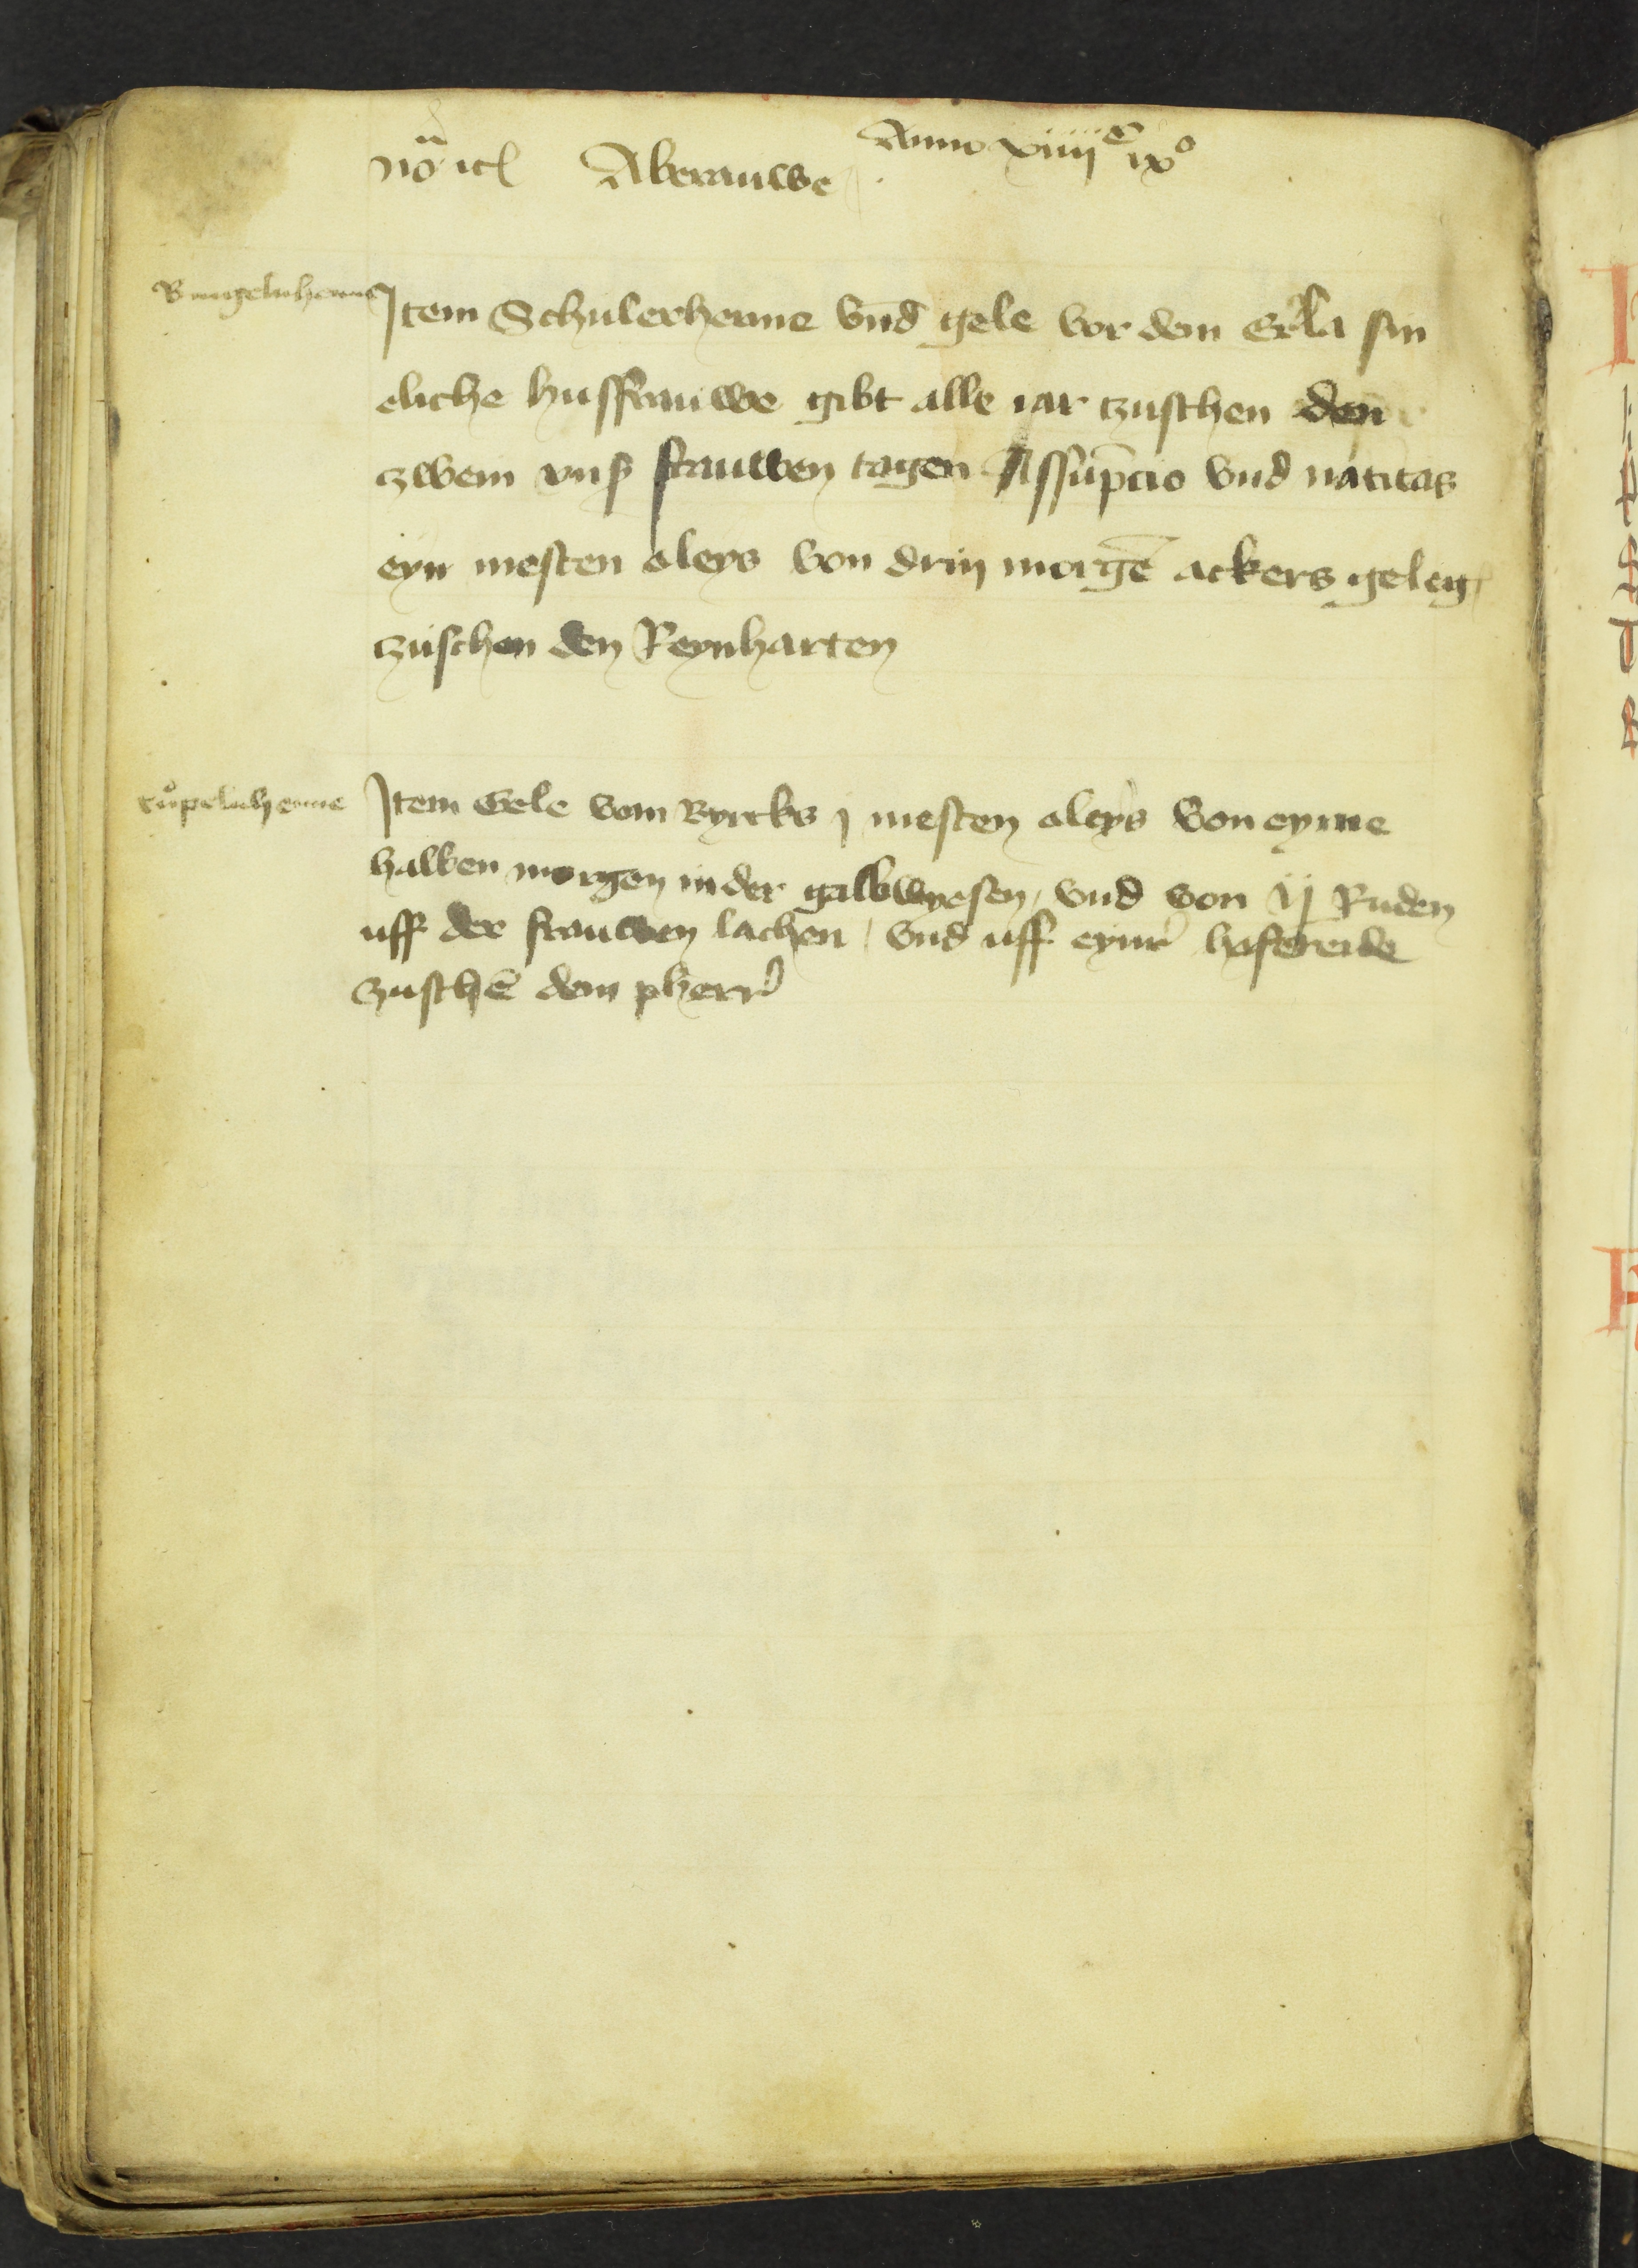 Aberauwe Anno xiiiiᶜ ixº
Ringelnhenne
Item Schulerhenne vnd gele vor dem Erla sin
eliche husffrauwe gibt alle iar tzuschen den
zwein vnß frauwen tagen Assūpcio vnd natitas
eyn mesten oleys von drin morgē ackers geleg
zuschen den Reynharten
ruͦpelnhenne
Item Gele vom Byrcks j mesten oleys von eyme
halben morgen in der galbwyesen, vnd von ij Ruden
uff der frauwen lachen / vnd uff eynr hofereide
zuschē dem pherr